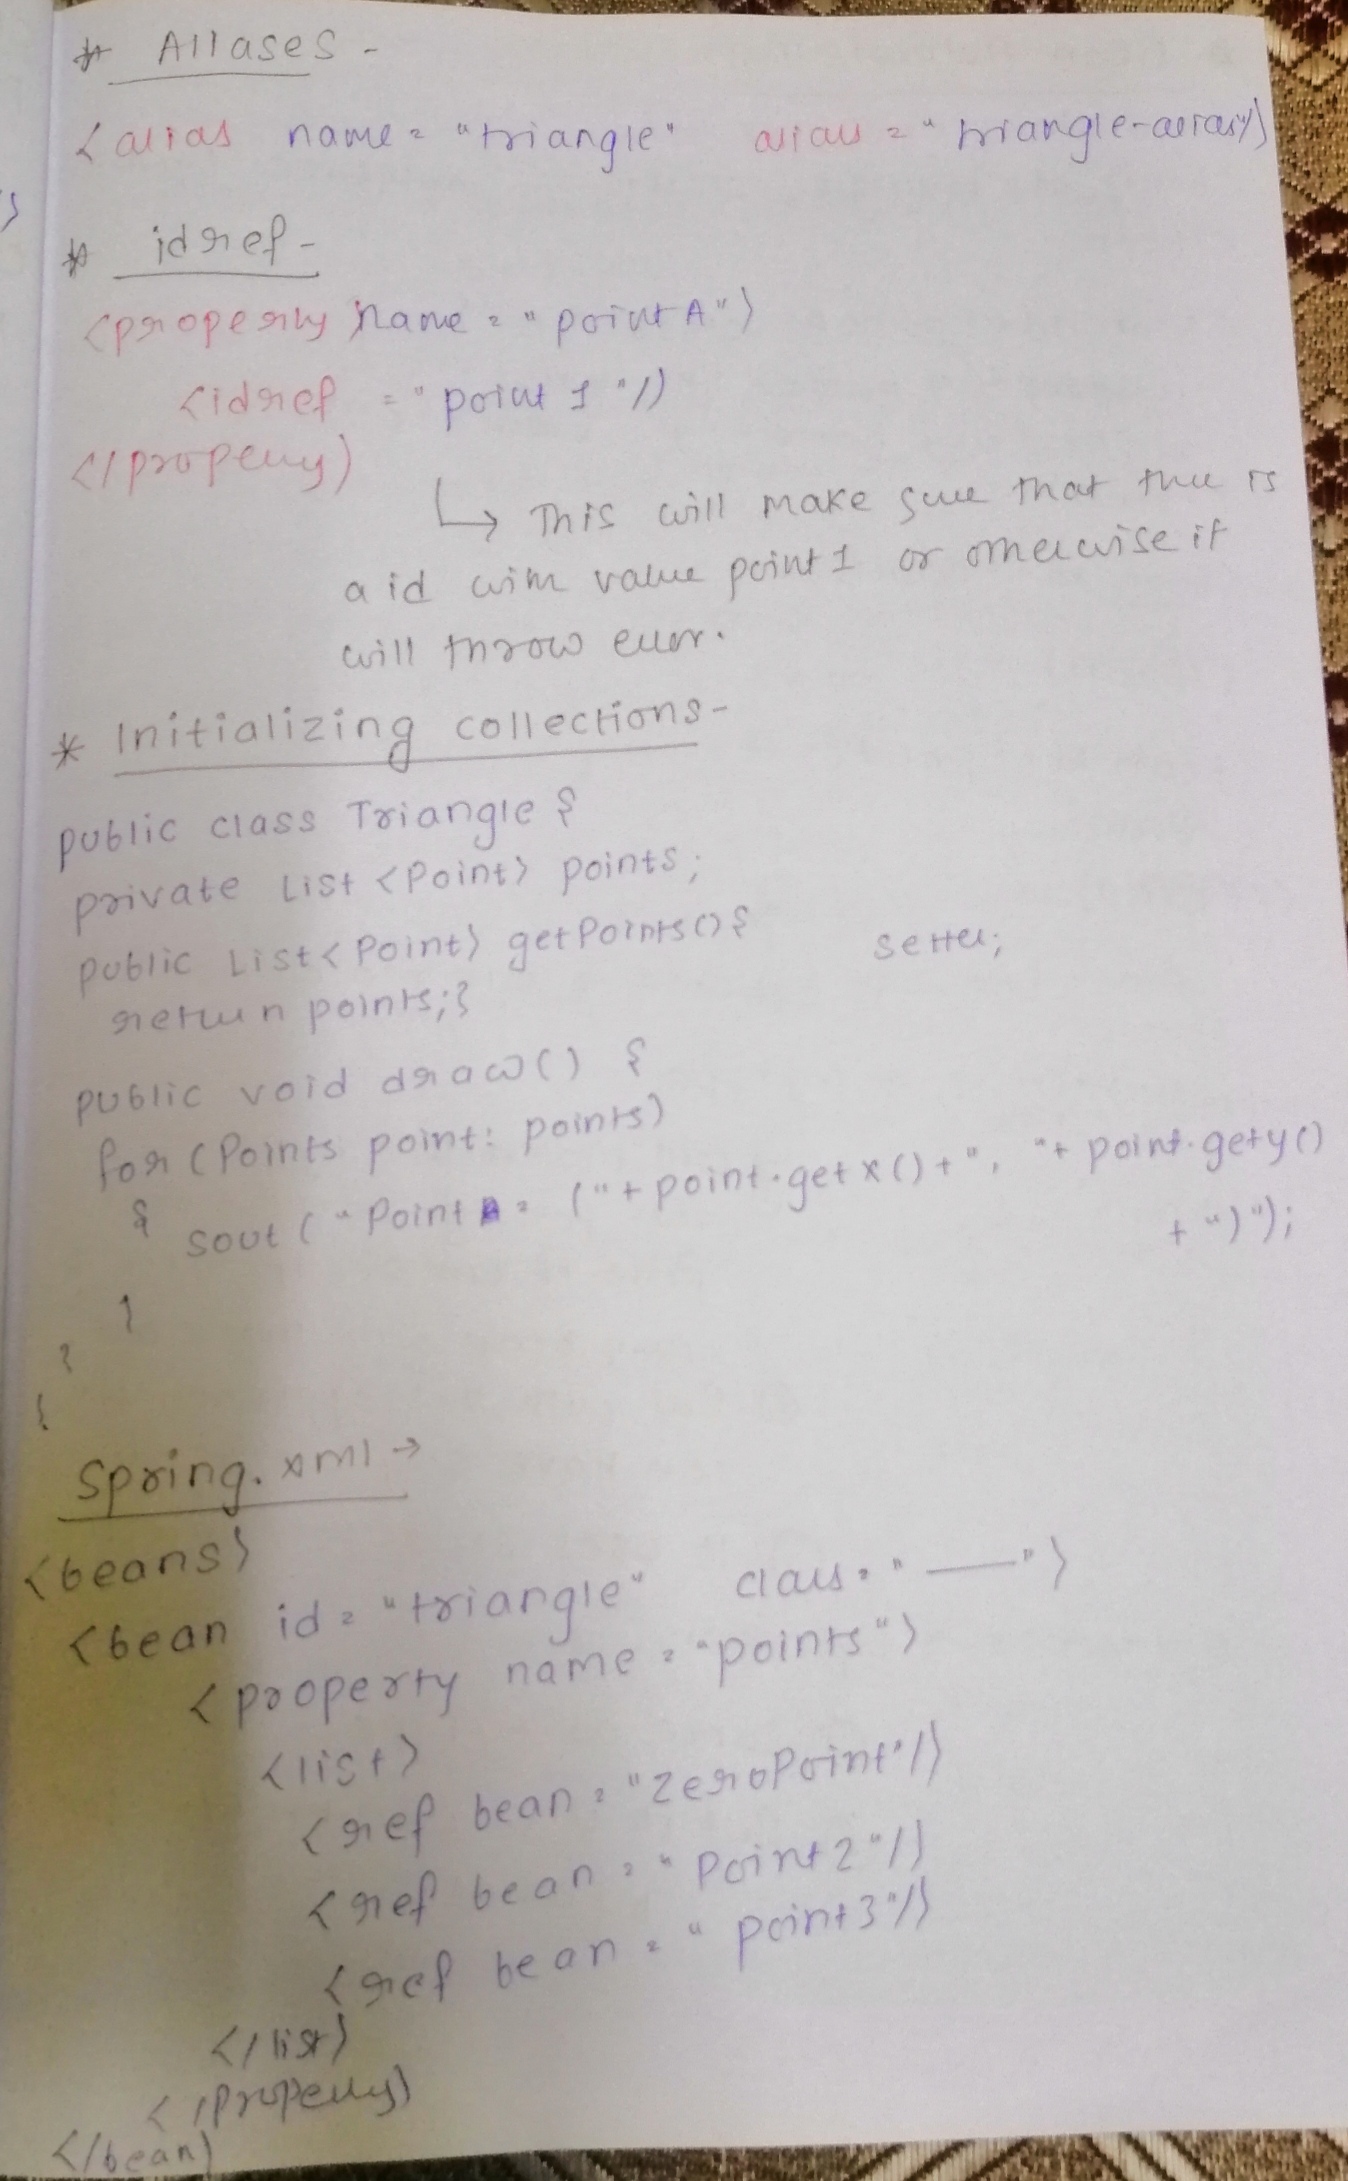 * Aliases -
<alias name = "triangle" alias = "triangle-array>
* idref -
<property name = "pointA">
<idref = "point 1"/>
</property>
↳ This will make sure that there is
a id with value point 1 or otherwise it
will throw error.
* Initializing collections -
public class Triangle {
private List <Point> points;
public List<Point> getPoints() { setter;
return points;}
public void draw() {
for (Points point: points)
{ sout ("Point = ("+ point.getx() +", "+ point.gety()
+ ")");
}
}
}
Spring.xml →
<beans>
<bean id = "triangle" class = "——">
<property name = "points">
<list>
<ref bean = "zeroPoint"/>
<ref bean = "Point2"/>
<ref bean = "point3"/>
</list>
</property>
</bean>